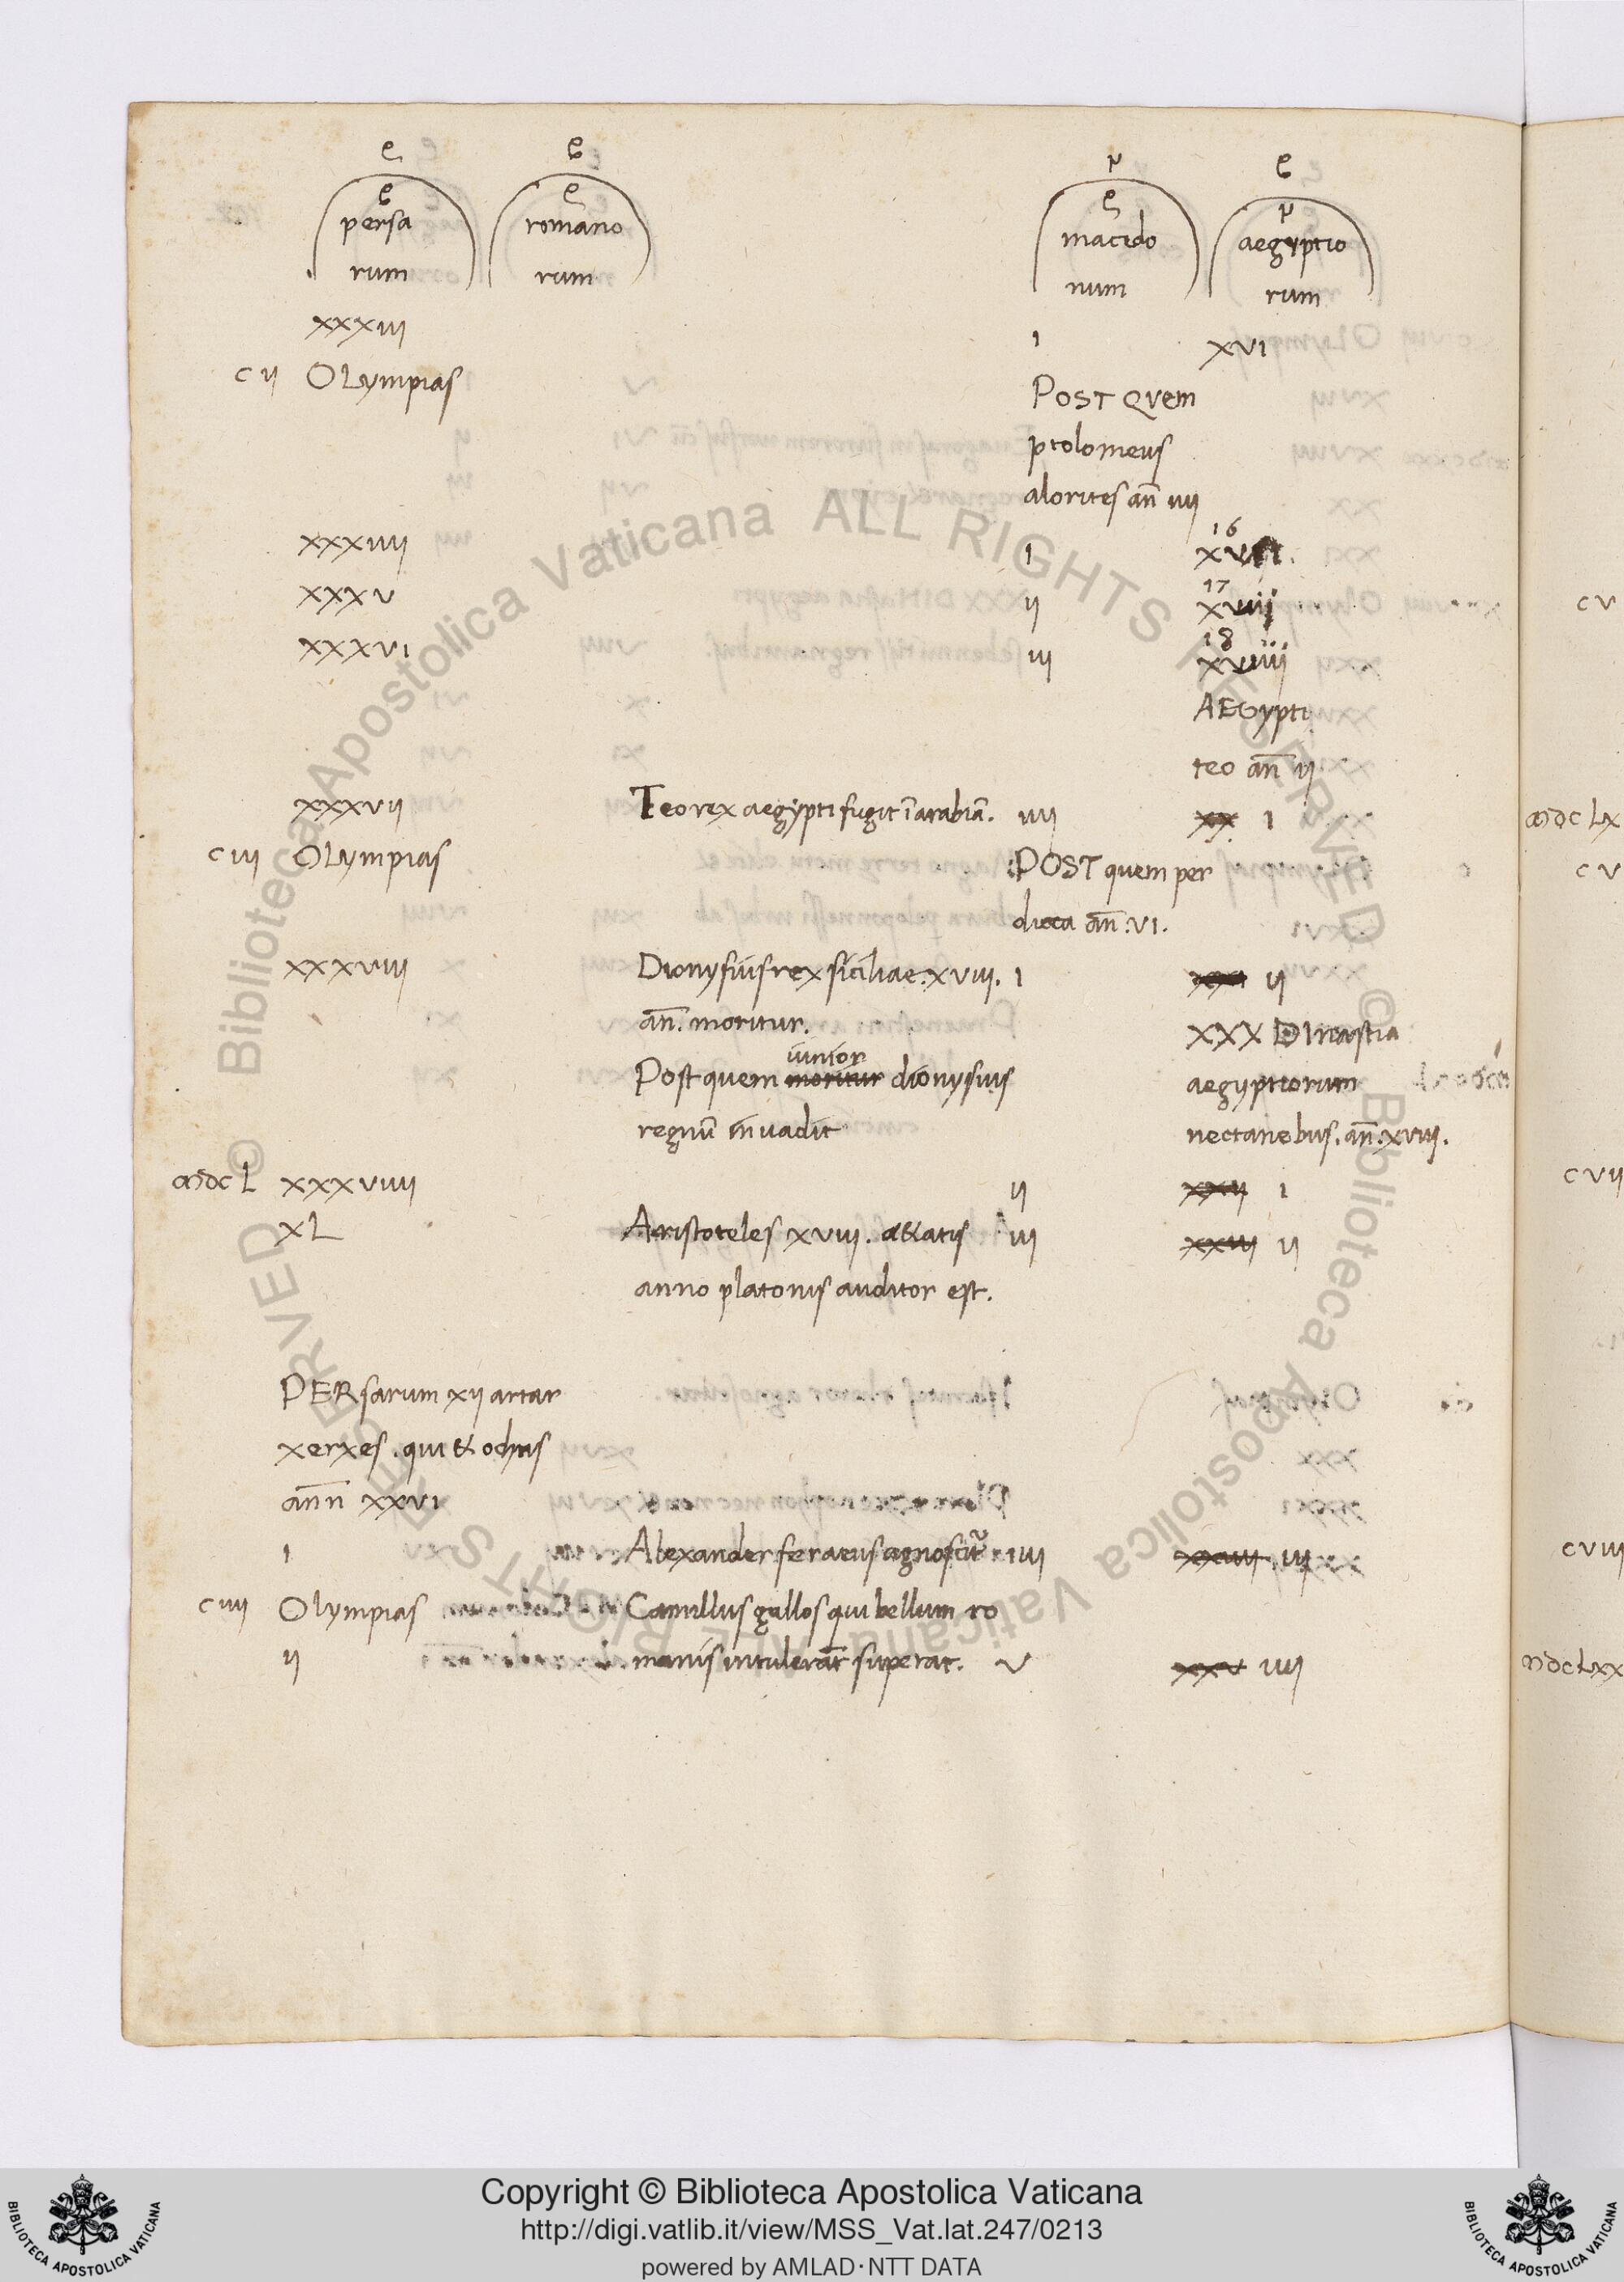 persa
rum
romano
rum
macedo
num
aegyptio
rum
xxxiii i xvi
cii OLympias
POST QVem
ptolomeus
alorites an̄ iiii
xxxiiii i 16
xxxv ii 17 xviii
xxxvi iii 18 xviiii
AEGypti
teo an̄ ii
xxxvii Teo rex aegypti fugit ī arabiā. iiii xx i
ciii OLympias POST quem per
dicca an̄:vi.
xxxviii Dionysius rex siciliae.xviii. i xxi ii
an̄. moritur. XXX DInastia
iunior
Post quem moritur dionysius aegyptiorum
regnū invadit nectanebus. an̄.xviii.
mdcL xxxviiii ii xxii i
xL Aristoteles xviii. aetatis iii xxiii ii
anno platonis auditor est.
PERsarum xii artar
xerxes. qui & ochus
ann̄ xxvi
i Alexander feraeus agnoscit iiii xxiiii iii
ciiii Olympias Camillus gallos qui bellum ro
ii manis intulerāt superat. v xxv iiii
cv
mdcLx
cv
cvii
cviii
mdcLxx
Copyright © Biblioteca Apostolica Vaticana
http://digi.vatlib.it/view/MSS_Vat.lat.247/0213
powered by AMLAD·NTT DATA
BIBLIOTECA APOSTOLICA VATICANA
BIBLIOTECA APOSTOLICA VATICANA
© Biblioteca Apostolica Vaticana ALL RIGHTS RESERVED
© Biblioteca Apostolica Vaticana ALL RIGHTS RESERVED